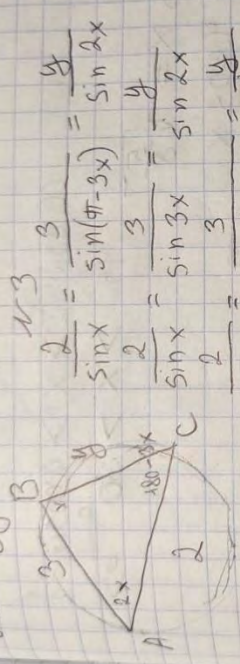 N 3
2/sin x = 3/sin(π-3x) = y/sin 2x
2/sin x = 3/sin 3x = y/sin 2x
2/ = 3/ = y/
B
3
x
y
2x
180-3x
A
2
C